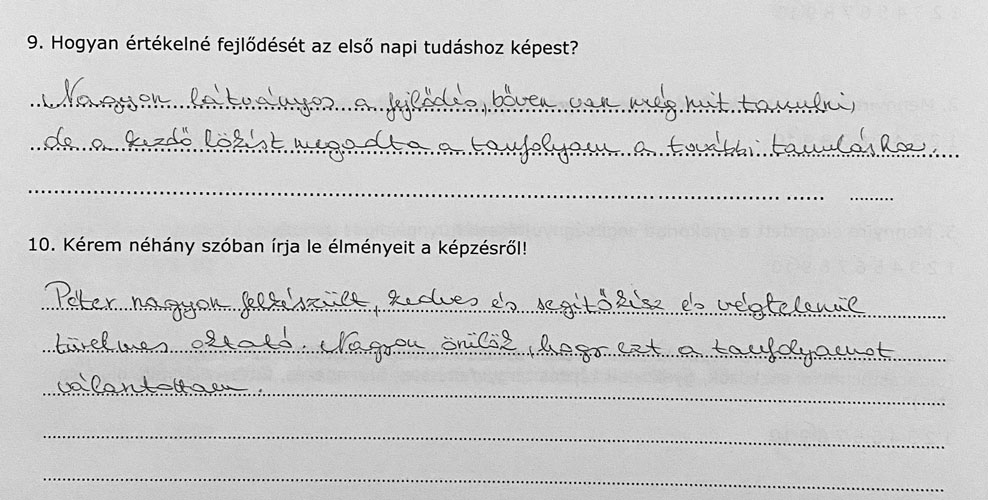 9. Hogyan értékelné fejlődését az első napi tudáshoz képest?
Nagyon látványos a fejlődés, bőven van még mit tanulni,
de a kezdő lökést megadta a tanfolyam a további tanuláshoz.
10. Kérem néhány szóban írja le élményeit a képzésről!
Péter nagyon felkészült, kedves és segítőkész és végtelenül
türelmes oktató. Nagyon örülök, hogy ezt a tanfolyamot
választottam.